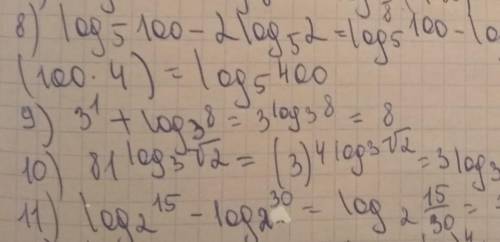 8) log₅100 - 2log₅2 = log₅100 -
(100·4) = log₅400
9) 3¹ + log₃8 = 3log₃8 = 8
10) 81^(log₃√2) = (3)^(4log₃√2) = 3log₃
11) log₂15 - log₂30 = log₂ 15/30 =